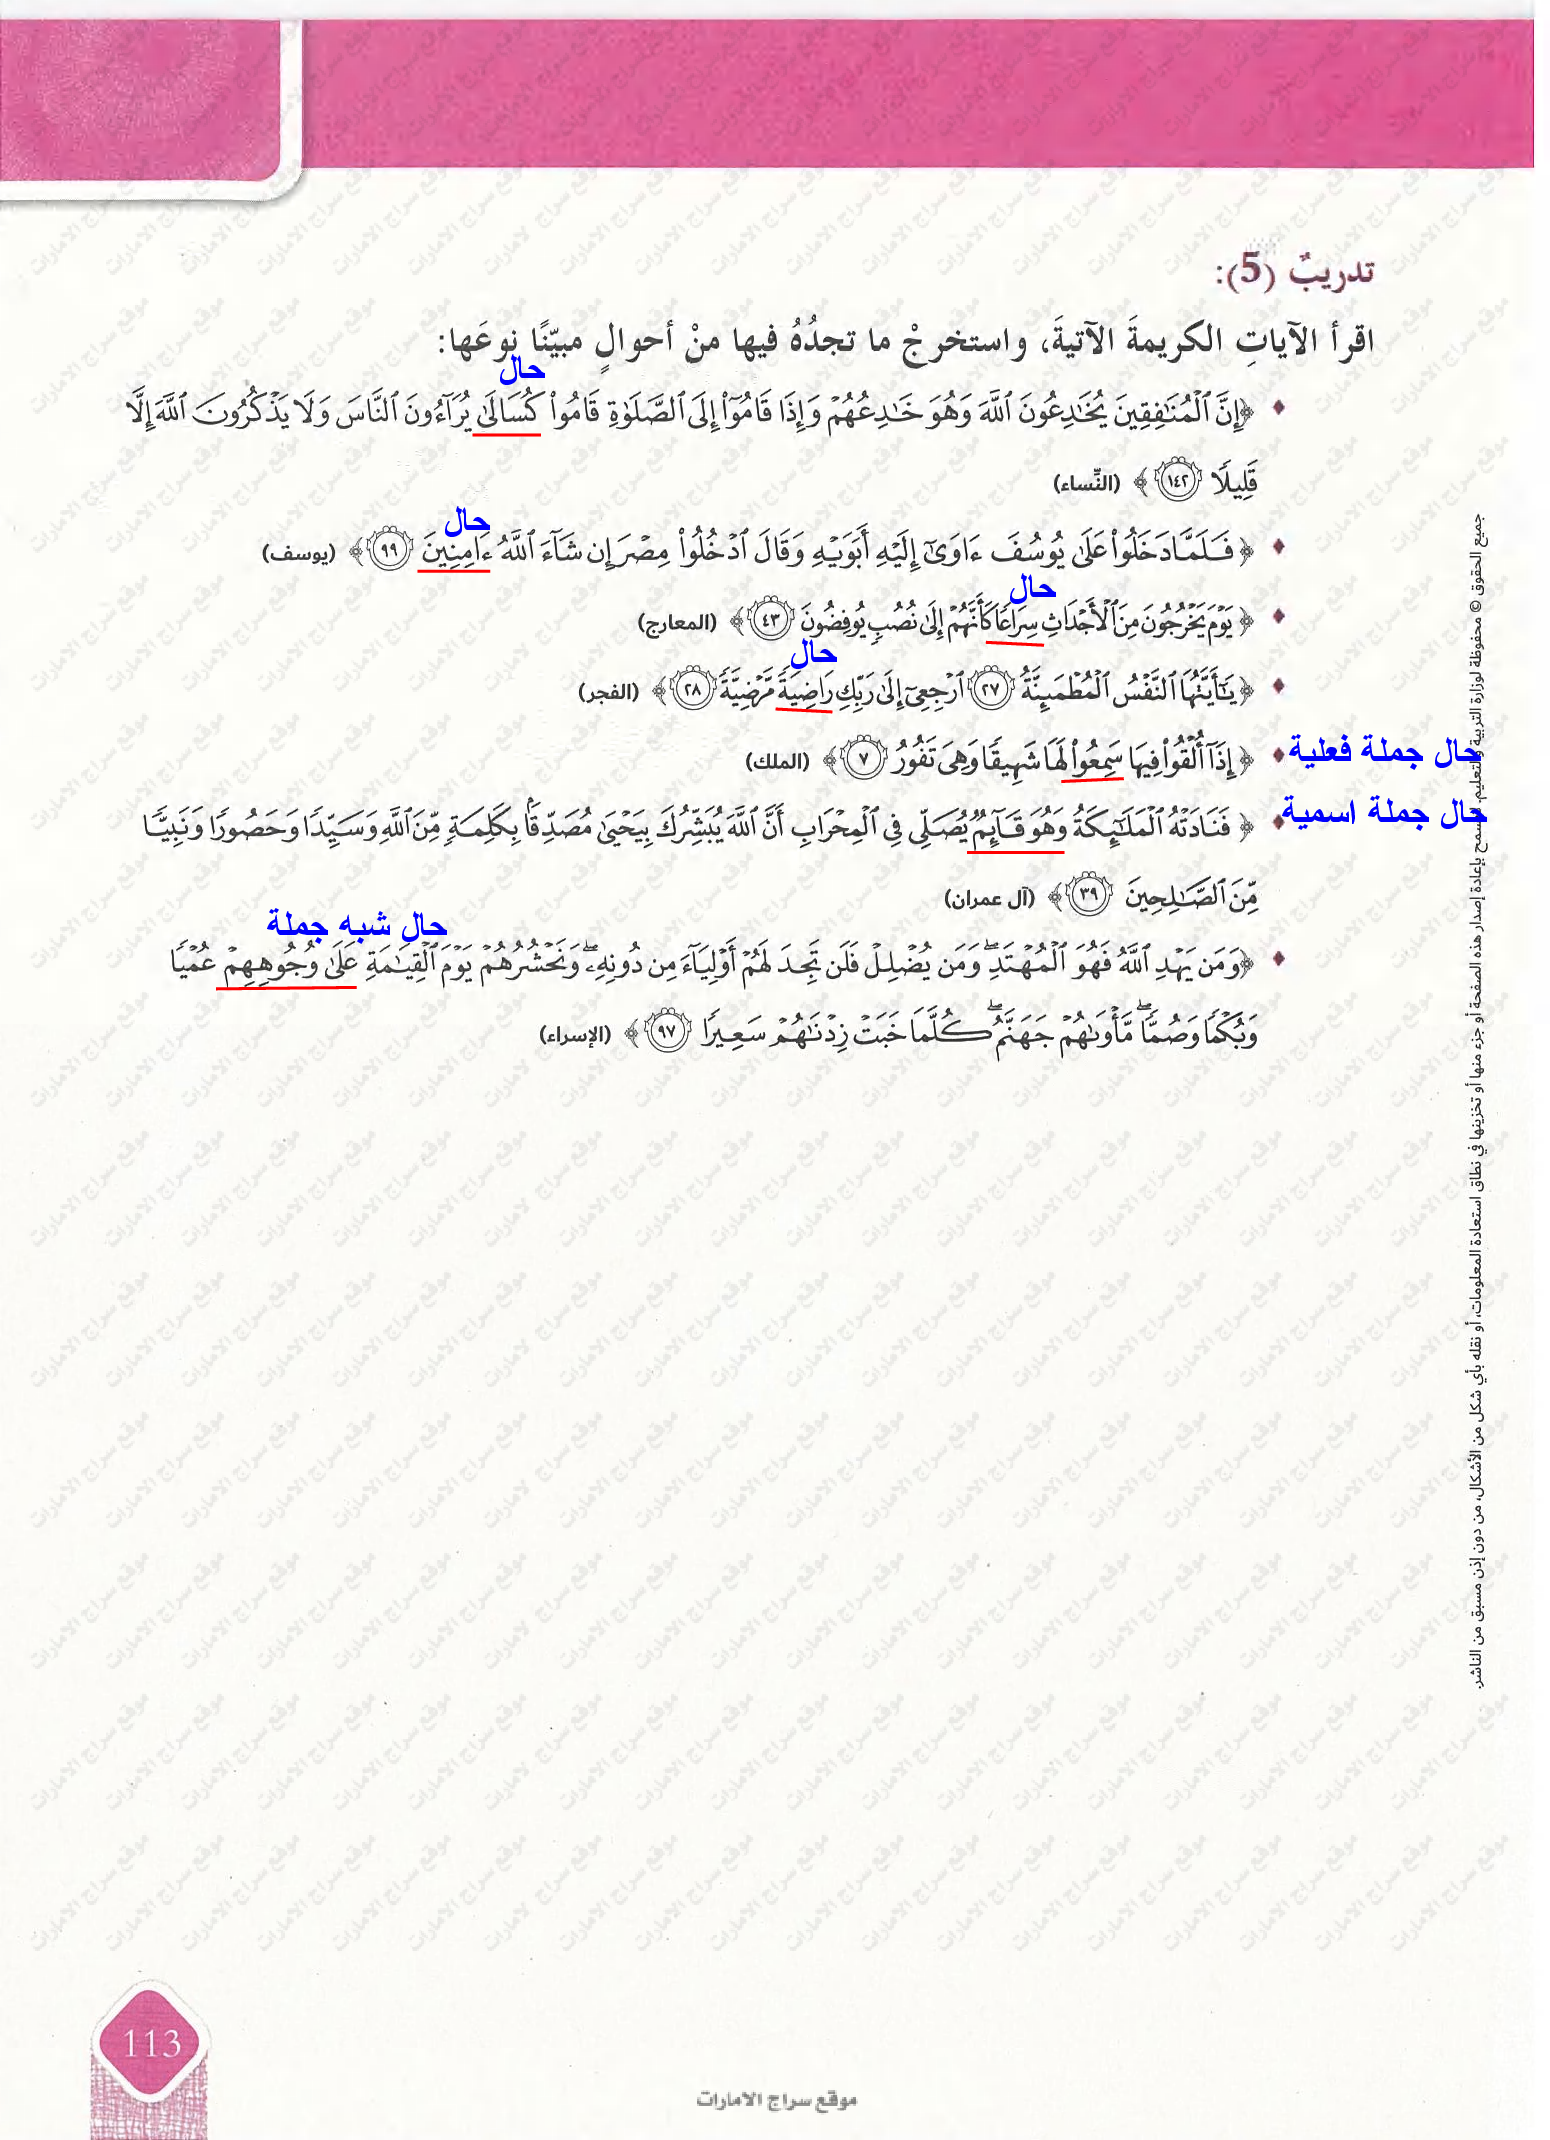 تدريبٌ (5):
اقرأ الآياتِ الكريمةَ الآتيةَ، واستخرجْ ما تجدُهُ فيها منْ أحوالٍ مبيّنًا نوعَها:
حال
﴿إِنَّ ٱلْمُنَٰفِقِينَ يُخَٰدِعُونَ ٱللَّهَ وَهُوَ خَٰدِعُهُمْ وَإِذَا قَامُوٓا۟ إِلَى ٱلصَّلَوٰةِ قَامُوا۟ كُسَالَىٰ يُرَآءُونَ ٱلنَّاسَ وَلَا يَذْكُرُونَ ٱللَّهَ إِلَّا
قَلِيلًا ١٤٢﴾ (النِّساء)
حال
﴿فَلَمَّا دَخَلُوا۟ عَلَىٰ يُوسُفَ ءَاوَىٰٓ إِلَيْهِ أَبَوَيْهِ وَقَالَ ٱدْخُلُوا۟ مِصْرَ إِن شَآءَ ٱللَّهُ ءَامِنِينَ ٩٩﴾ (يوسف)
حال
﴿يَوْمَ يَخْرُجُونَ مِنَ ٱلْأَجْدَاثِ سِرَاعًا كَأَنَّهُمْ إِلَىٰ نُصُبٍ يُوفِضُونَ ٤٣﴾ (المعارج)
حال
﴿يَٰٓأَيَّتُهَا ٱلنَّفْسُ ٱلْمُطْمَئِنَّةُ ٢٧ ٱرْجِعِىٓ إِلَىٰ رَبِّكِ رَاضِيَةً مَّرْضِيَّةً ٢٨﴾ (الفجر)
حال جملة فعلية
﴿إِذَآ أُلْقُوا۟ فِيهَا سَمِعُوا۟ لَهَا شَهِيقًا وَهِىَ تَفُورُ ٧﴾ (الملك)
حال جملة اسمية
﴿فَنَادَتْهُ ٱلْمَلَٰٓئِكَةُ وَهُوَ قَآئِمٌ يُصَلِّى فِى ٱلْمِحْرَابِ أَنَّ ٱللَّهَ يُبَشِّرُكَ بِيَحْيَىٰ مُصَدِّقًۢا بِكَلِمَةٍ مِّنَ ٱللَّهِ وَسَيِّدًا وَحَصُورًا وَنَبِيًّا
مِّنَ ٱلصَّٰلِحِينَ ٣٩﴾ (آل عمران)
حال شبه جملة
﴿وَمَن يَهْدِ ٱللَّهُ فَهُوَ ٱلْمُهْتَدِ ۖ وَمَن يُضْلِلْ فَلَن تَجِدَ لَهُمْ أَوْلِيَآءَ مِن دُونِهِۦ ۖ وَنَحْشُرُهُمْ يَوْمَ ٱلْقِيَٰمَةِ عَلَىٰ وُجُوهِهِمْ عُمْيًا
وَبُكْمًا وَصُمًّا ۖ مَّأْوَىٰهُمْ جَهَنَّمُ ۖ كُلَّمَا خَبَتْ زِدْنَٰهُمْ سَعِيرًا ٩٧﴾ (الإسراء)
جميع الحقوق © محفوظة لوزارة التربية والتعليم. لا يسمح بإعادة إصدار هذه الصفحة أو جزء منها أو تخزينها في نطاق استعادة المعلومات، أو نقله بأي شكل من الأشكال، من دون إذن مسبق من الناشر.
113
موقع سراج الامارات